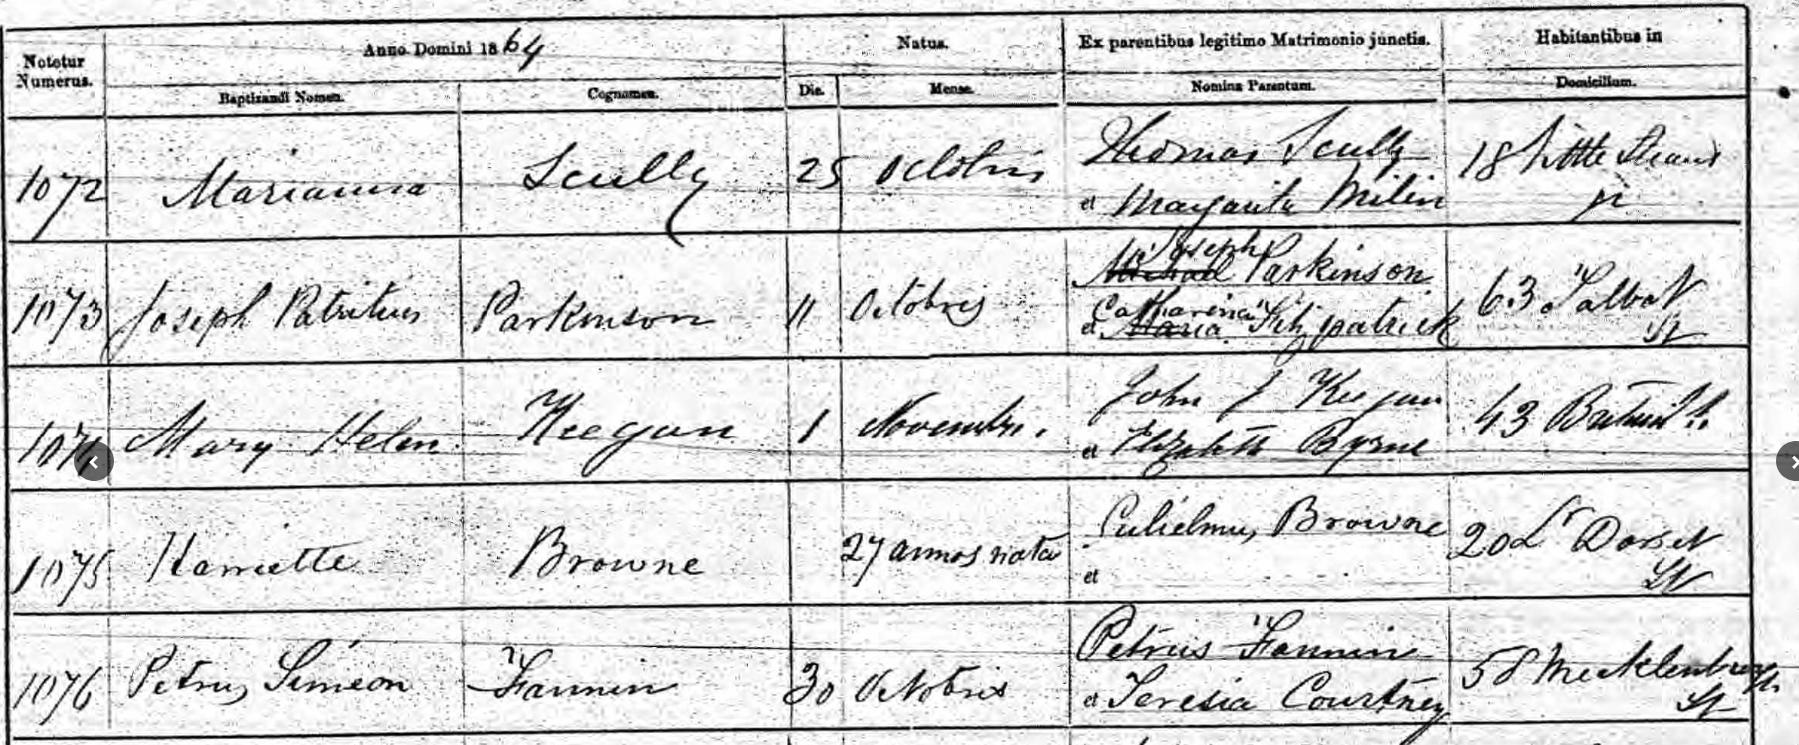 Nototur Numerus.
Anno Domini 1864
Natus.
Ex parentibus legitimo Matrimonio junctis.
Habitantibus in
Baptizandi Nomen.
Cognomen.
Die.
Mense.
Nomina Parentum.
Domicilium.
1072 Marianna Scully 25 Octobris Thomas Scully 18 Little
et Margarita
1073 Joseph Patritius Parkinson 11 Octobris Michael Joseph Parkinson 63 Talbot St
et Maria Catharina Fitzpatrick
Mary Helen Keegan 1 Novembris. John J Keegan 43
et Elizabeth Byrne
1075 Harriette Browne 27 annos nata Gulielmus Browne 20 Lr Dorset St
et
1076 Petrus Simeon Fannin 30 Octobris Petrus Fannin 58 Mecklenburgh St
et Teresia Courtney